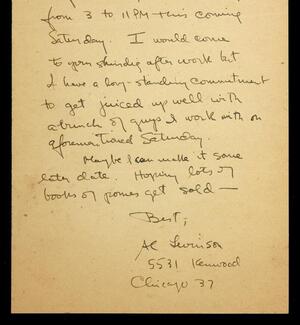 from 3 to 11 PM this coming
Saturday. I would come
to your shindig after work but
I have a long-standing commitment
to get juiced up well with
a bunch of guys I work with on
aforementioned Saturday.
Maybe I can make it some
later date. Hoping lots of
books of pomes get sold —
Best,
Al Levinson
5531 Kenwood
Chicago 37